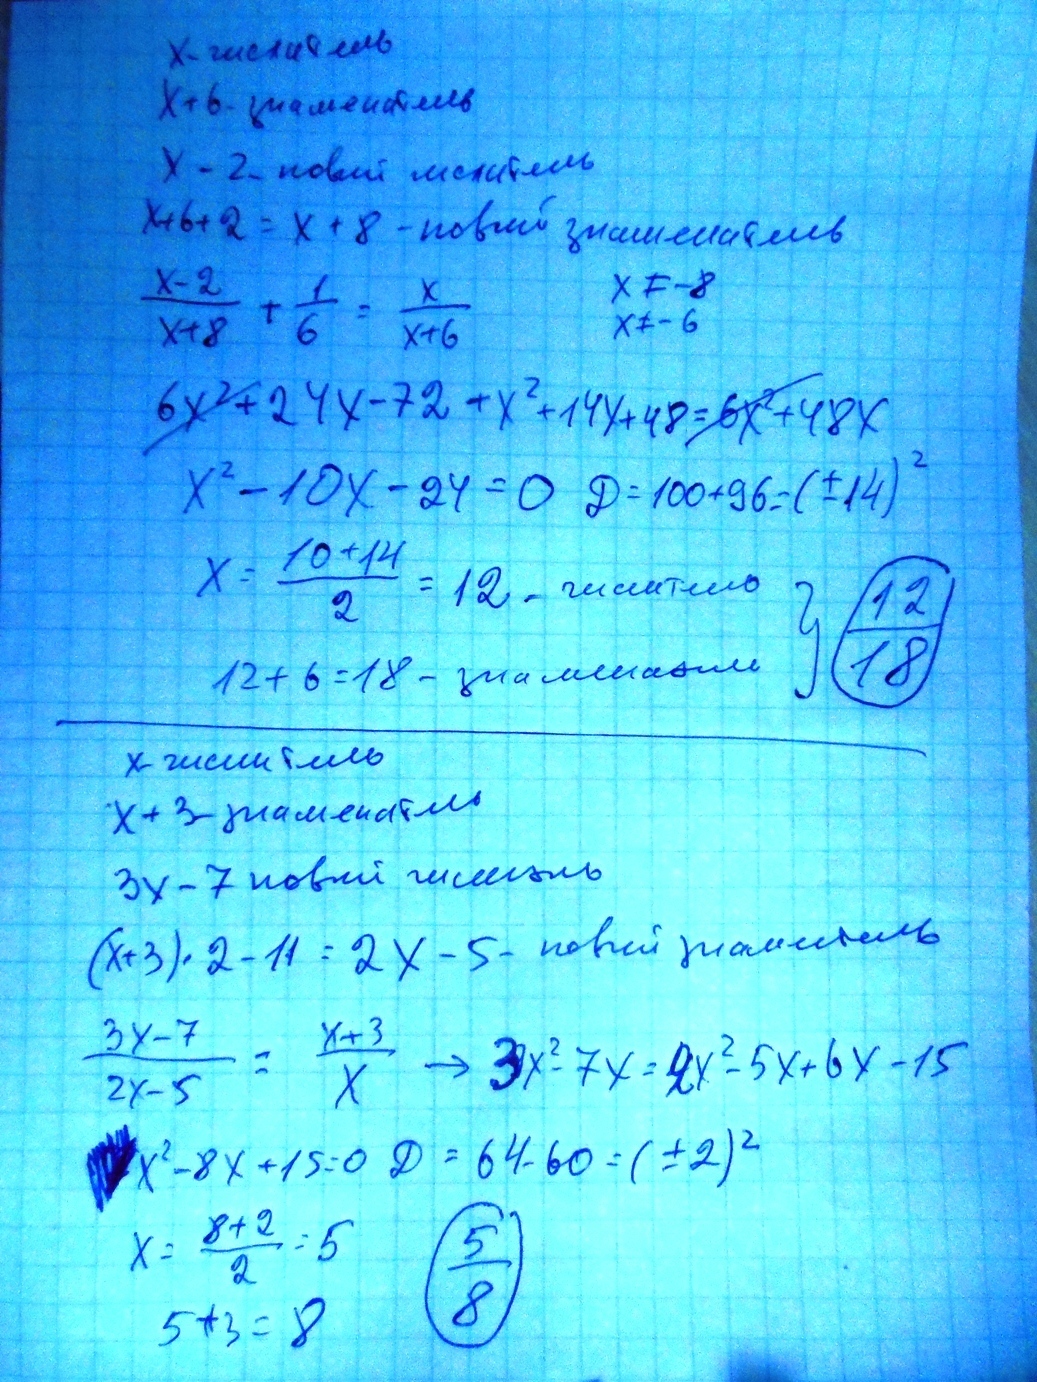 x - числитель
x+6 - знаменатель
x - 2 - новый числитель
x+6+2 = x + 8 - новый знаменатель
x-2/x+8 + 1/6 = x/x+6 x ≠ -8
x ≠ -6
6x²+24x-72+x²+14x+48=6x²+48x
x²-10x-24=0 D=100+96=(±14)²
x = 10+14/2 = 12 - числитель
12+6=18 - знаменатель } 12/18
x - числитель
x+3 - знаменатель
3x-7 новый числитель
(x+3)·2-11 = 2x-5 - новый знаменатель
3x-7/2x-5 = x+3/x → 3x²-7x=2x²-5x+6x-15
x²-8x+15=0 D = 64-60=(±2)²
x = 8+2/2 = 5 5/8
5+3=8